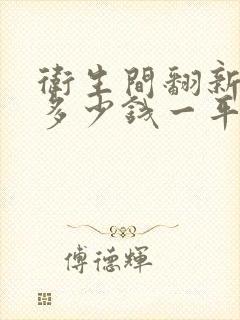 衛生間翻新
多少錢一平
傅德輝